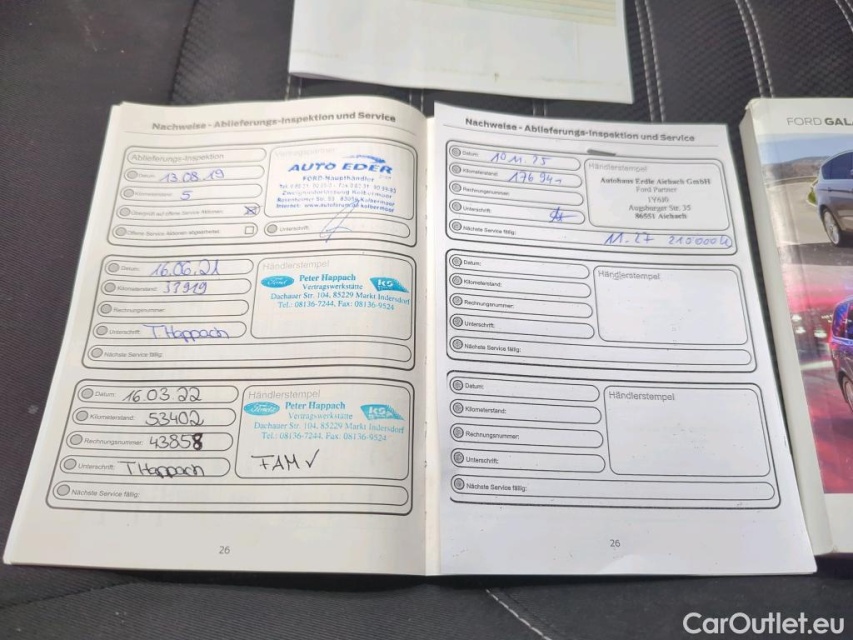 FORD GALA
Nachweise - Ablieferungs-Inspektion und Service
Ablieferungs-Inspektion
Datum: 13.08.19
5
Überprüft auf offene Service-Aktionen:
Offene Service-Aktionen abgearbeitet:
Unterschrift:
AUTO EDER
FORD-Haupthändler
Datum: 16.06.21
Kilometerstand: 37919
Rechnungsnummer:
Unterschrift: T Happach
Nächste Service fällig:
Händlerstempel
Ford Peter Happach
Vertragswerkstätte
Dachauer Str. 104, 85229 Markt Indersdorf
Tel.: 08136-7244, Fax: 08136-9524
Datum: 16.03.22
Kilometerstand: 53402
Rechnungsnummer: 43858
Unterschrift: T Happach
Nächste Service fällig:
Händlerstempel
Ford Peter Happach
Vertragswerkstätte
Dachauer Str. 104, 85229 Markt Indersdorf
Tel.: 08136-7244, Fax: 08136-9524
FAM ✓
26
Nachweise - Ablieferungs-Inspektion und Service
Datum:
Kilometerstand:
Rechnungsnummer:
Unterschrift:
Nächste Service fällig: 11.27 210000
Händlerstempel
Autohaus Erdle Aichach GmbH
Ford Partner
Augsburger Str. 35
86551 Aichach
Datum:
Kilometerstand:
Rechnungsnummer:
Unterschrift:
Nächste Service fällig:
Händlerstempel
Datum:
Kilometerstand:
Rechnungsnummer:
Unterschrift:
Nächste Service fällig:
Händlerstempel
26
CarOutlet.eu